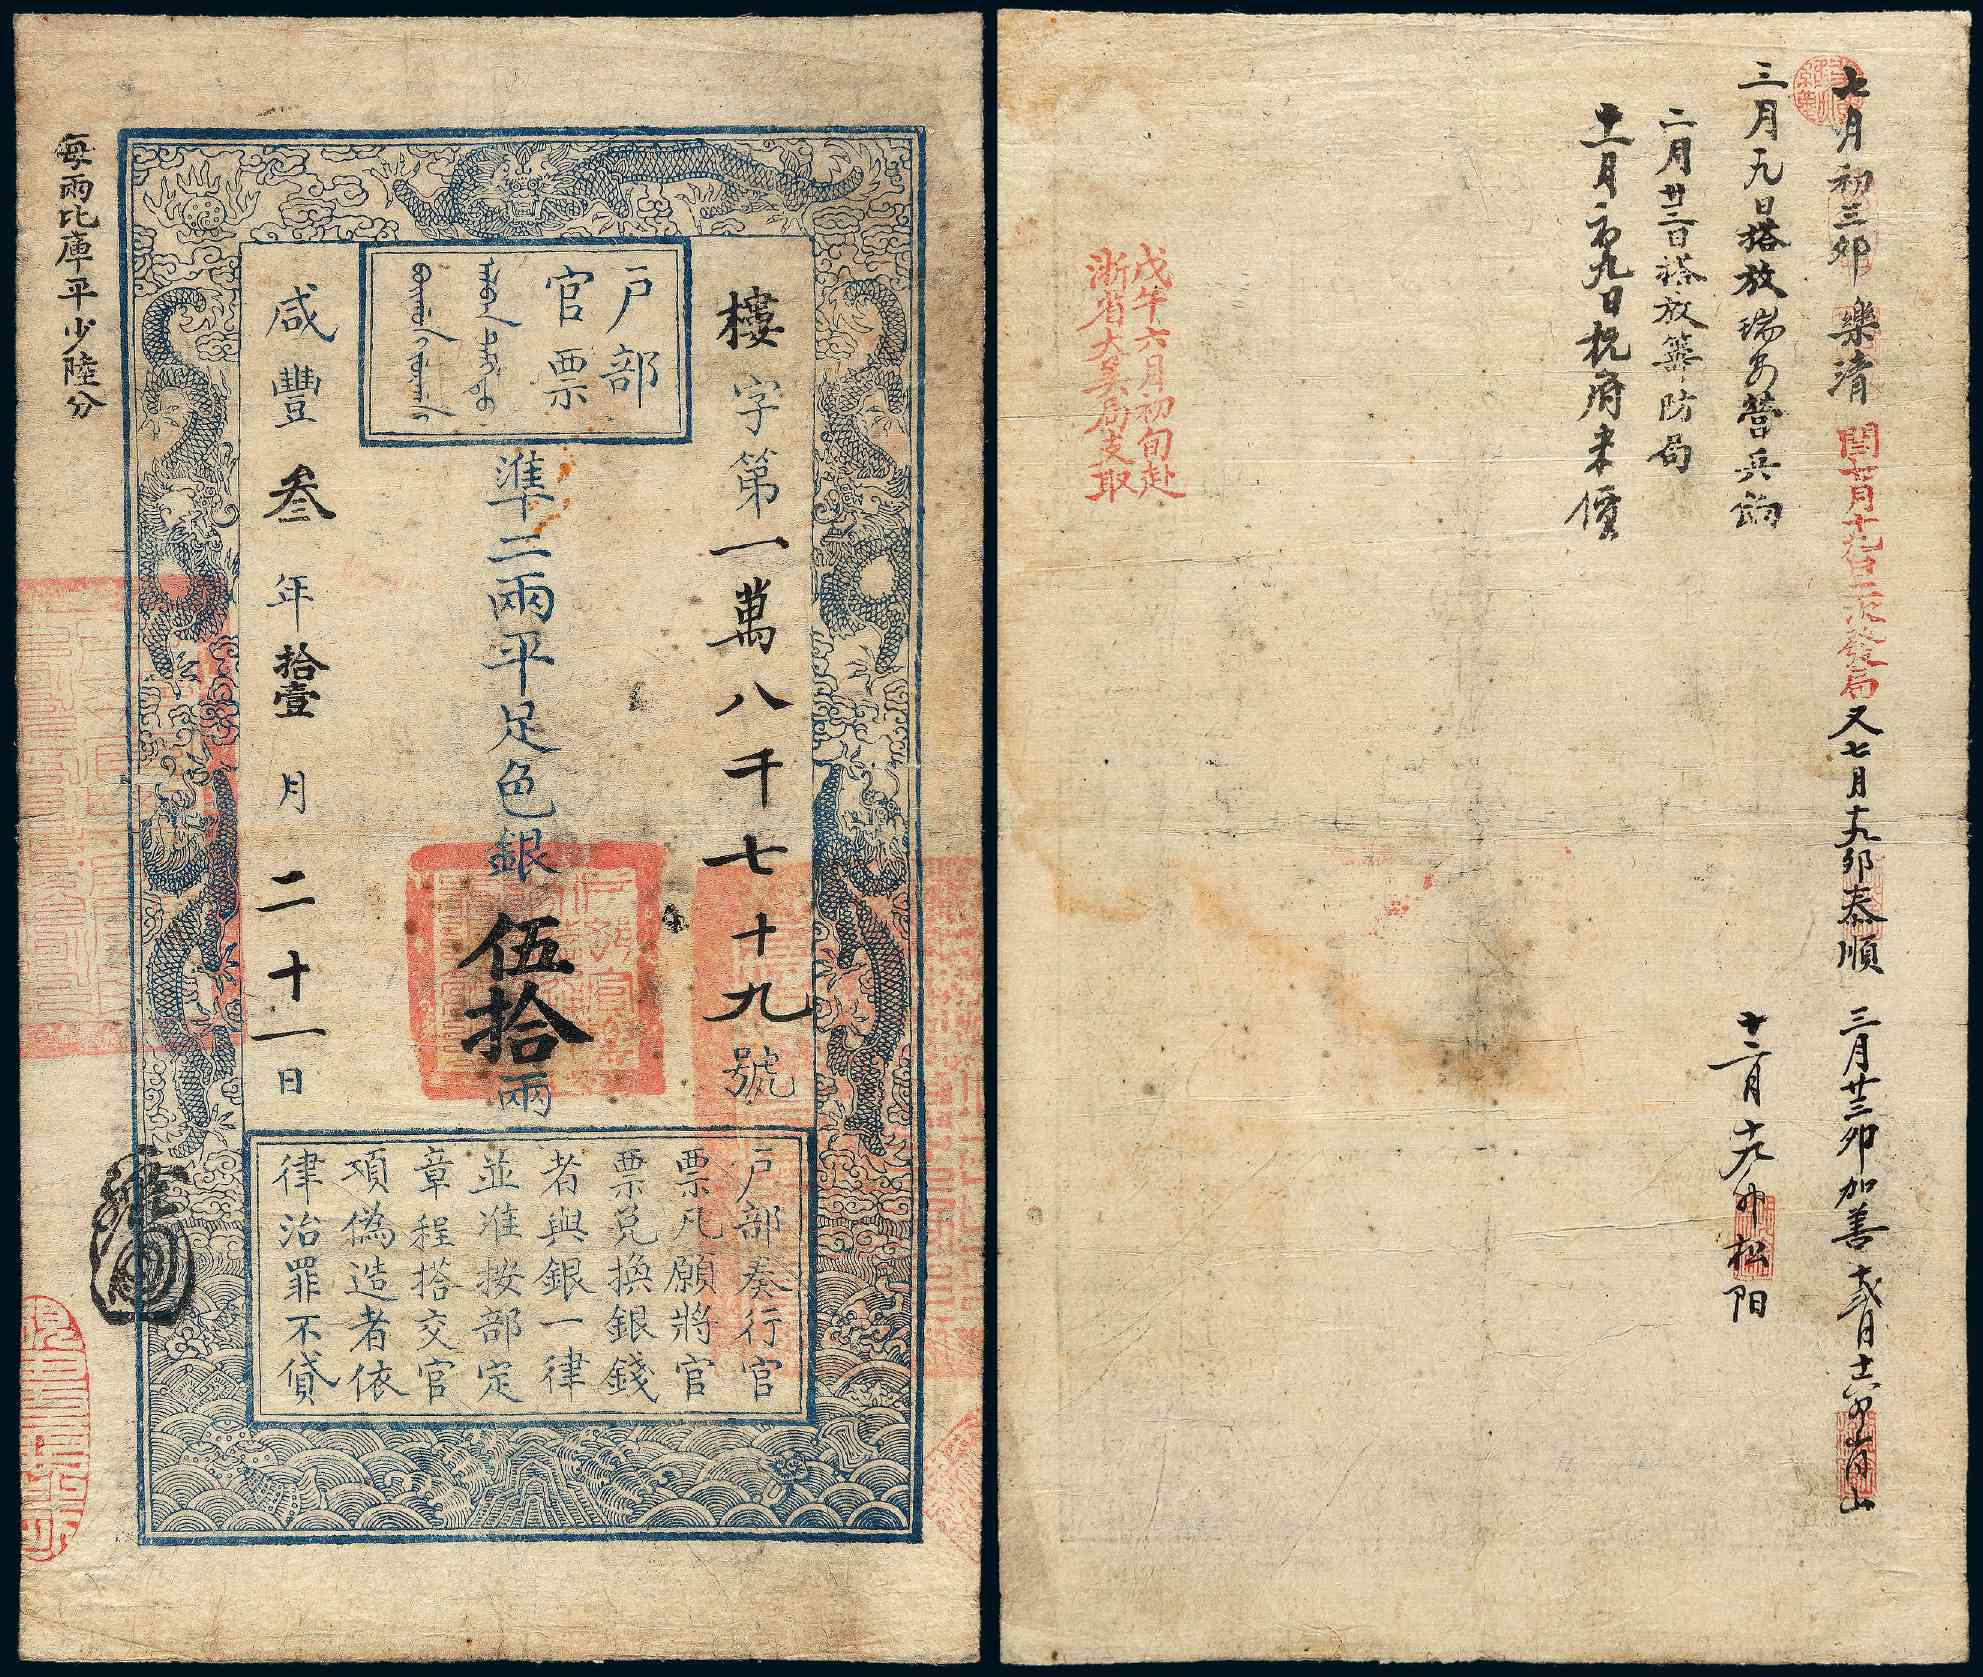 每兩比庫平少陸分
戶部
官票
樓字第一萬八千七十九號
準二兩平足色銀伍拾兩
咸豐叁年拾壹月二十一日
戶部奏行官
票凡願將官
票兌換銀錢
者與銀一律
並准按部定
章程搭交官
項偽造者依
律治罪不貸
七月初三卯樂清
閏七月十九日二次發局
又七月十九卯泰順
三月廿三卯加善
青山
三月九日搭放瑞安營兵餉
十二月十九卯松阳
二月廿二日搭放籌防局
十一月初九日杭府來價
戊午六月初旬赴
浙省大美局支取